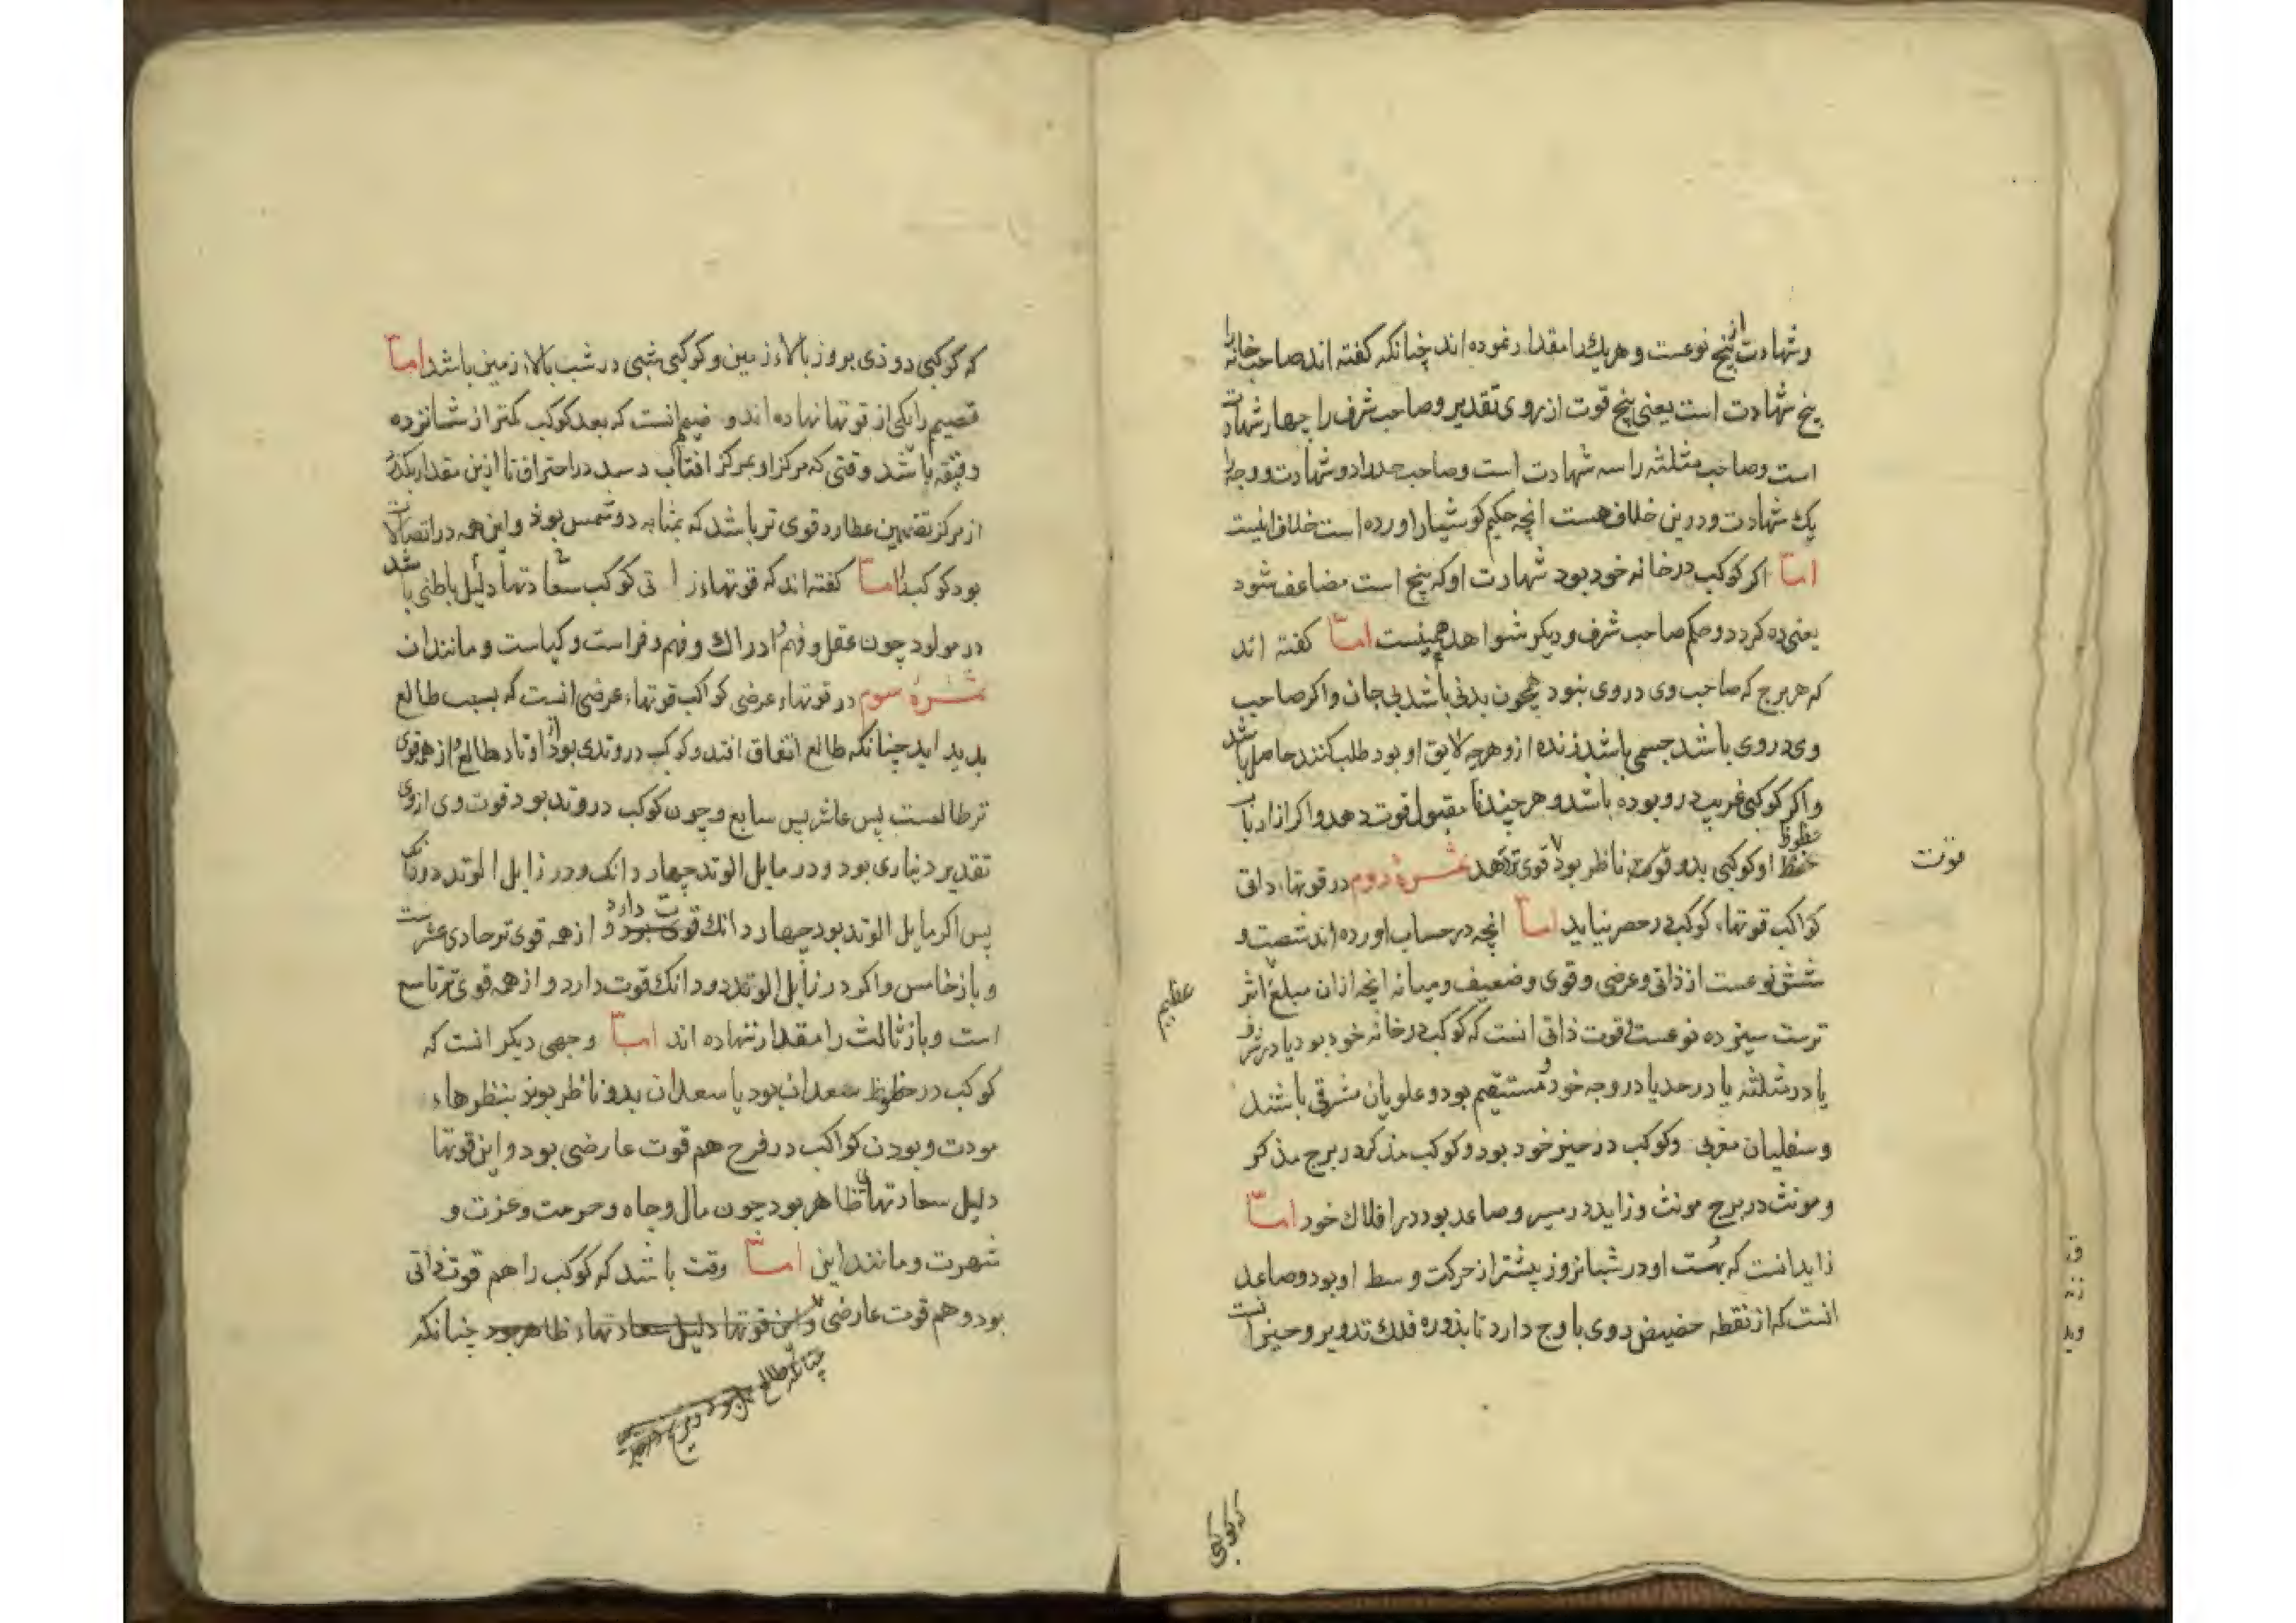 وشهادت پنج نوعست و هریك را مقدار نموده اند چنانکه کفته اند صاحب خانه را
پنج شهادت است یعنی پنج قوت از روی تقدیر و صاحب شرف را چهار شهادت
است و صاحب مثلثه را سه شهادت است و صاحب حد را دو شهادت و وجه را
یك شهادت و درین خلاف هست انچه حکیم کوشیار اورده است خلاف اینست
اما اکر کوکب در خانه خود بود شهادت او که پنج است مضاعف شود
یعنی ده کردد و حکم صاحب شرف و دیکر شواهد همینست اما کفته اند
که هر برج که صاحب وی در وی نبود همچون بدنی باشد بی جان و اکر صاحب
وی در وی باشد جسمی باشد زنده ازو هرچه لایق او بود طلب کنند حاصل باشد
و اکر کوکبی غریب درو بوده باشد و هر چند نا مقبول قوت دهد و اکر از ارباب
حظوظ او کوکبی بدو ناظر بود قوی تر دهد ثمرهٔ دوم در قوتهاء ذاتی
قوت
کواکب قوتهاء کوکب در حصر نیاید اما انچه در حساب اورده اند شصت و
شش نوعست از ذاتی و عرضی و قوی و ضعیف و میانه انچه ازان مبلغ اثر
عظیم
ترست سیزده نوعست قوت ذاتی انست که کوکب در خانه خود بود یا در شرف
یا در مثلثه یا در حد یا در وجه خود و مستقیم بود و علویان مشرقی باشند
و سفلیان مغربی و کوکب در حیز خود بود و کوکب مذکر در برج مذکر
و مونث در برج مونث و زاید در سیر و صاعد بود در افلاك خود اما
زاید انست که بهت او در شبانروز بیشتر از حرکت وسط او بود و صاعد
انست که از نقطه حضیض روی باوج دارد تا بذوره فلك تدویر و حیز انست
که کوکبی
که کوکبی روزی بروز بالاء زمین و کوکبی شبی در شب بالاء زمین باشد اما
تصمیم را یکی از قوتها نهاده اند و ان انست که بعد کوکب کمتر از شانزده
دقیقه باشد وقتی که مرکز او بمرکز افتاب رسد در احتراق تا ازین مقدار بکذرد
از مرکز تصمیم عطارد قوی تر باشد که بمثابه دو شمس بود و این همه در اتصالات
بود کوکب را اما کفته اند که قوتهاء ذاتی کوکب سعادتها دلیل باطنی باشد
در مولود چون عقل و فهم و ادراك و فهم و فراست و کیاست و مانند ان
ثمرهٔ سوم در قوتهاء عرضی کواکب قوتهاء عرضی انست که بسبب طالع
پدید اید چنانکه طالع اتفاق افتد و کوکب در وتدی بود از اوتاد طالع و از همه قوی
تر طالعست پس عاشر پس سابع و چون کوکب در وتد بود قوت وی از روی
تقدیر دیناری بود و در مایل الوتد چهار دانك و در زایل الوتد دو دانك
پس اکر مایل الوتد بود چهار دانك قوت دارد و از همه قوی تر حادی عشرست
و باز خامس و اکر در زایل الوتد دو دانك قوت دارد و از همه قوی تر تاسع
است و باز ثالث را مقدار ننهاده اند اما وجهی دیکر انست که
کوکب در حظوظ سعدان بود یا سعدان بدو ناظر بوند بنظرهاء
مودت و بودن کواکب در فرح هم قوت عارضی بود و این قوتها
دلیل سعادتهای ظاهر بود چون مال و جاه و حرمت و عزت و
شهرت و مانند این اما وقت باشد که کوکب را هم قوت ذاتی
بود و هم قوت عارضی و این قوتها دلیل سعادتهاء ظاهر بود چنانکه
چنانکه طالع